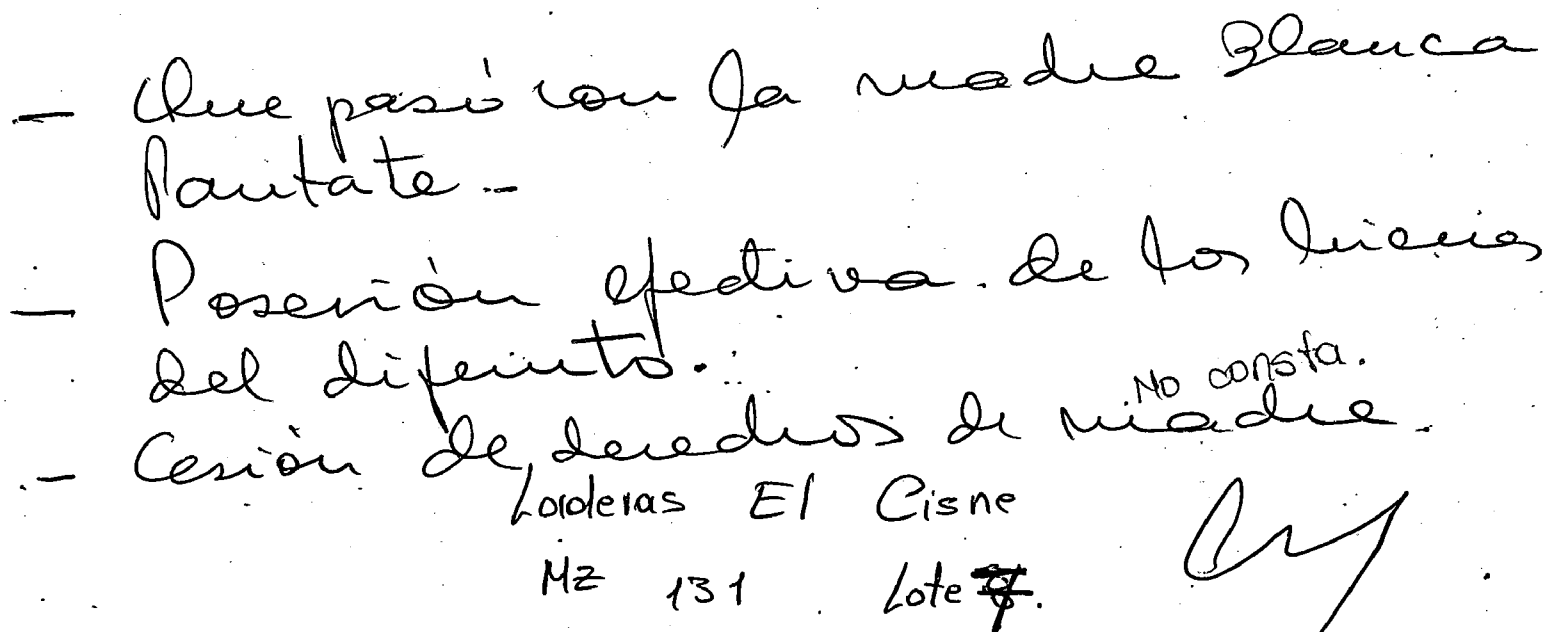 - Que pasó con la madre Blanca
Pantate -
- Posesión efectiva. de los bienes
del difunto.
No consta.
- Cesión de derechos de madre.
Laderas El Cisne
Mz 131 Lote